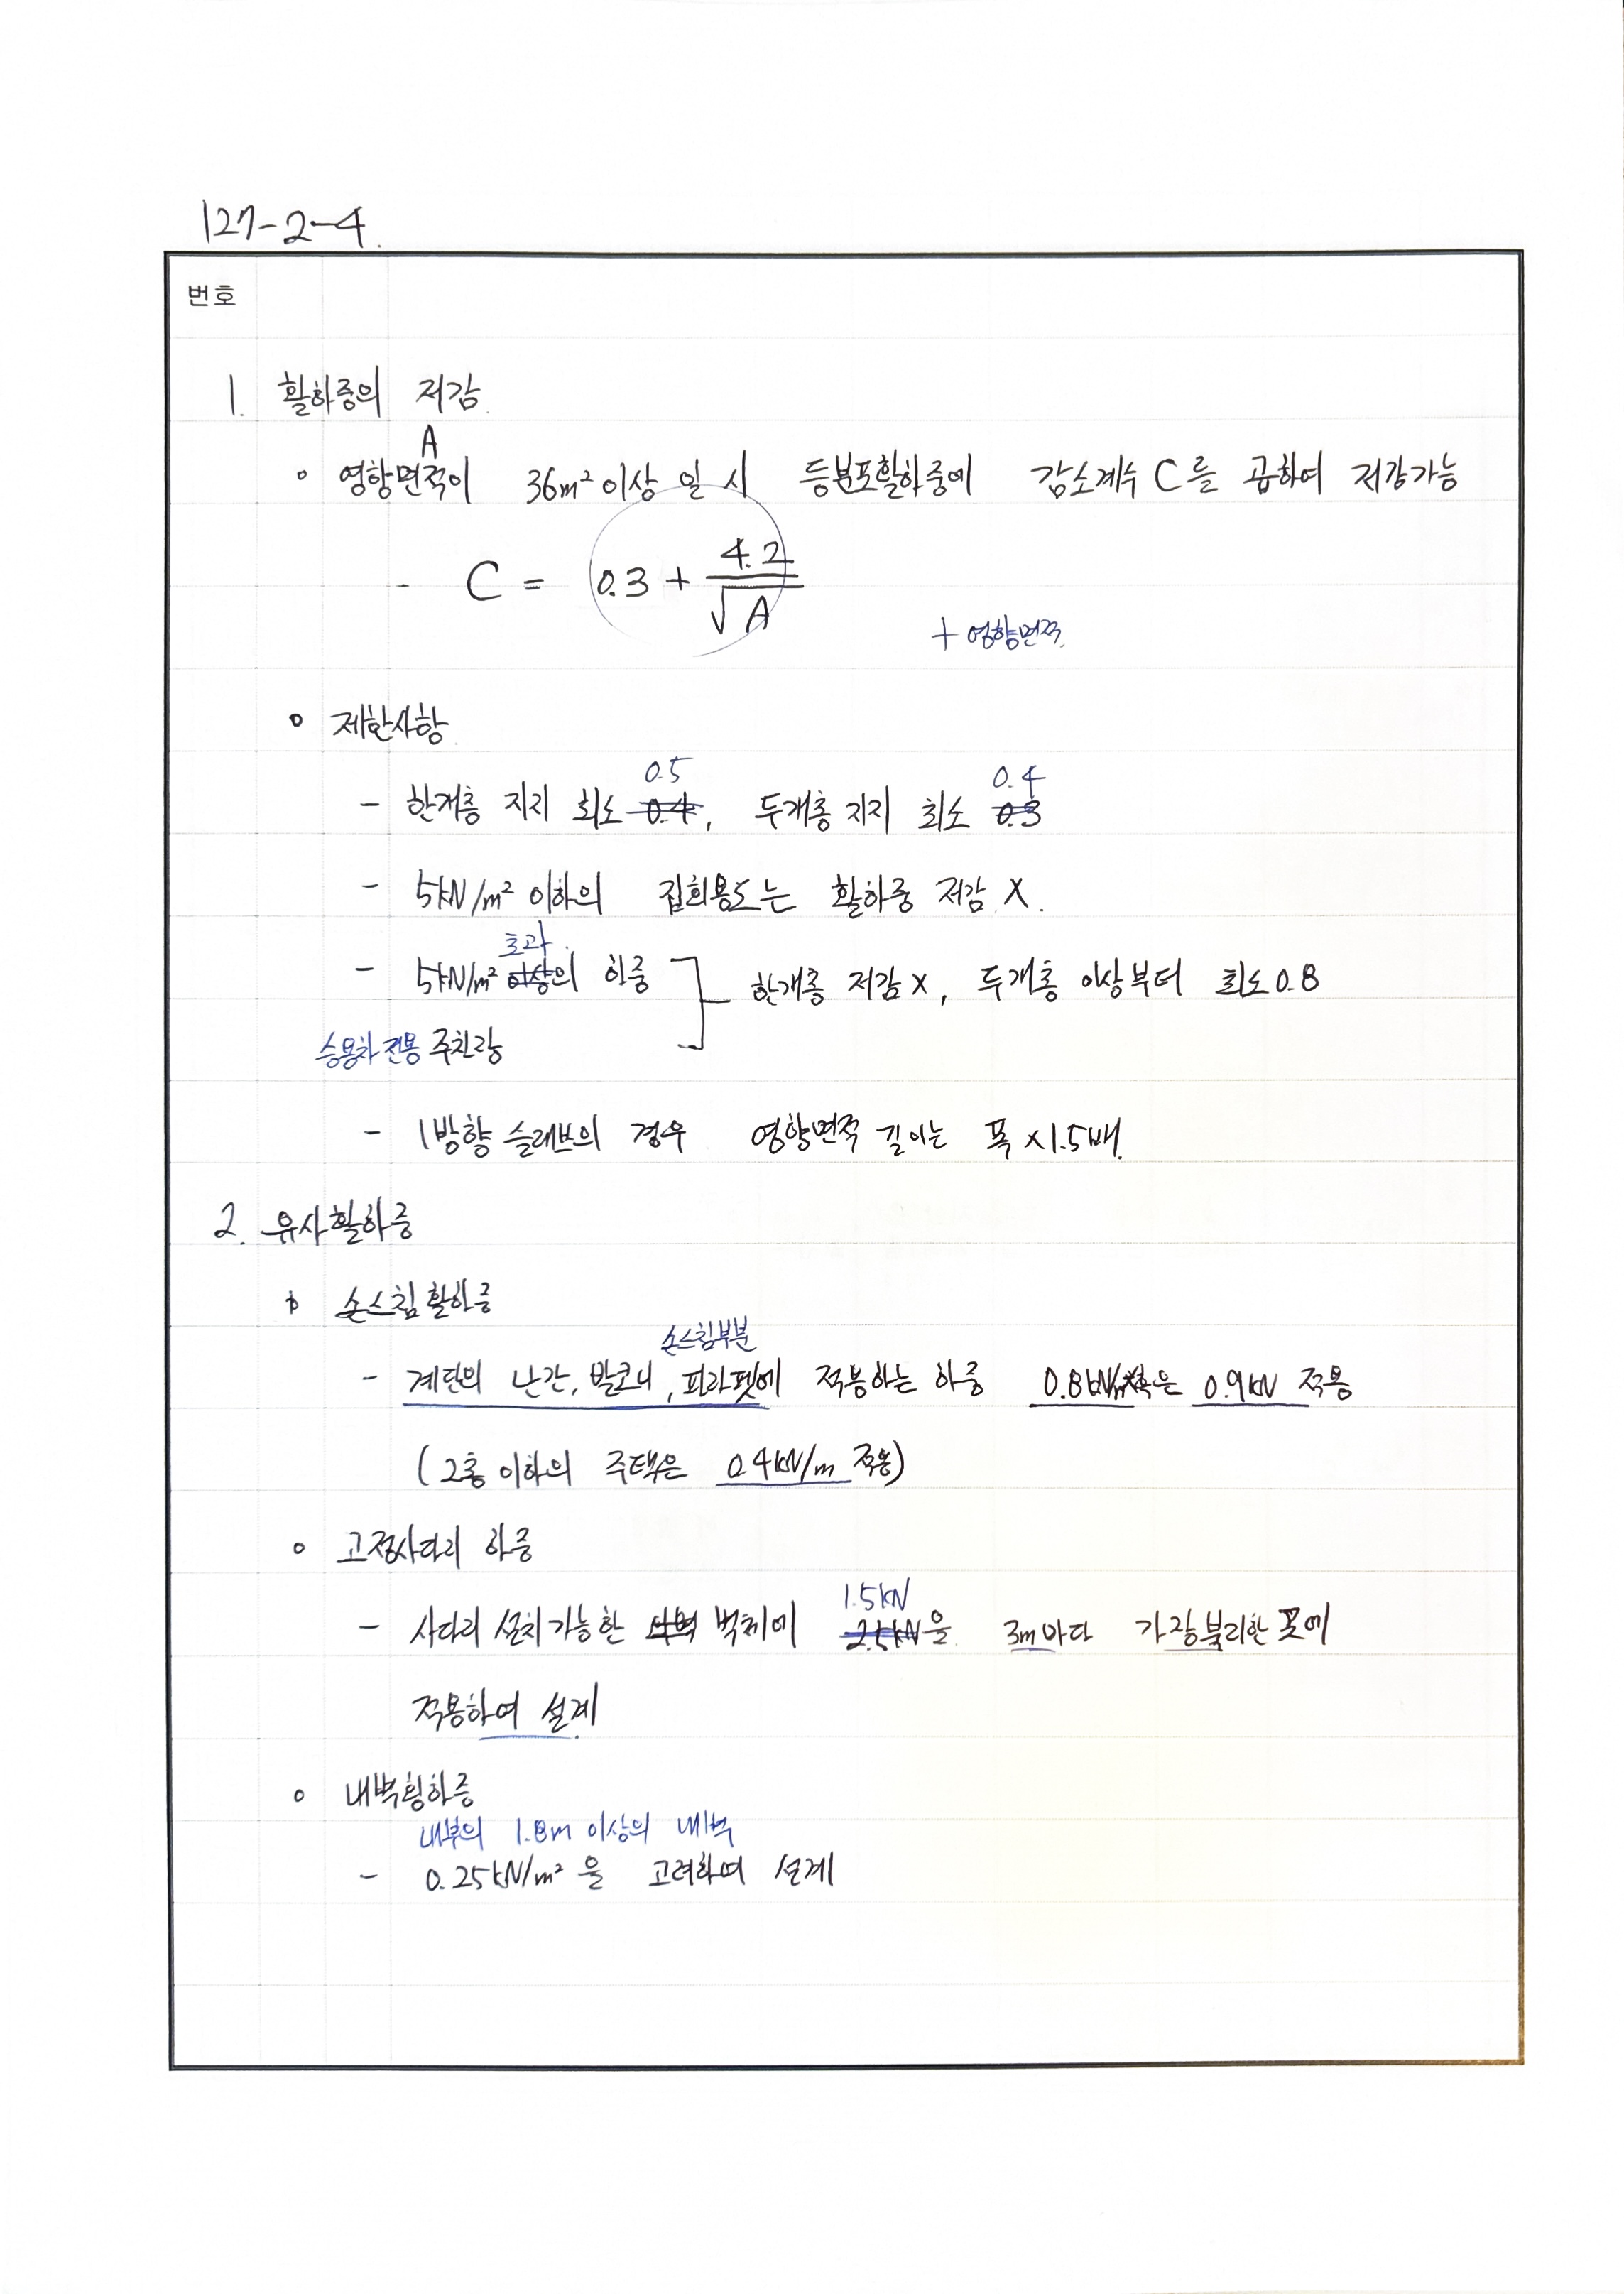 127-2-4.
번호
1. 활하중의 저감.
A
◦ 영향면적이 36m² 이상 일 시 등분포활하중에 감소계수 C를 곱하여 저감가능
- C = 0.3 + 4.2/√A
+ 영향면적.
◦ 제한사항
0.5 0.4
- 한개층 지지 최소 0.4, 두개층 지지 최소 0.3
- 5kN/m² 이하의 집회용도는 활하중 저감 X.
초과.
- 5kN/m² 이상의 하중 ] 한개층 저감 X, 두개층 이상부터 최소 0.8
승용차 전용 주차장
- 1방향 슬래브의 경우 영향면적 길이는 폭 x1.5배.
2. 유사활하중
◦ 손스침활하중
손스침부분
- 계단의 난간, 발코니, 파라펫에 적용하는 하중 0.8kN/m 혹은 0.9kN 적용
(2층 이하의 주택은 0.4kN/m 적용)
◦ 고정사다리 하중
1.5kN
- 사다리 설치 가능한 벽체에 2.5kN을 3m마다 가장불리한 곳에
적용하여 설계.
◦ 내벽횡하중
내부의 1.8m 이상의 내벽
- 0.25kN/m² 을 고려하여 설계